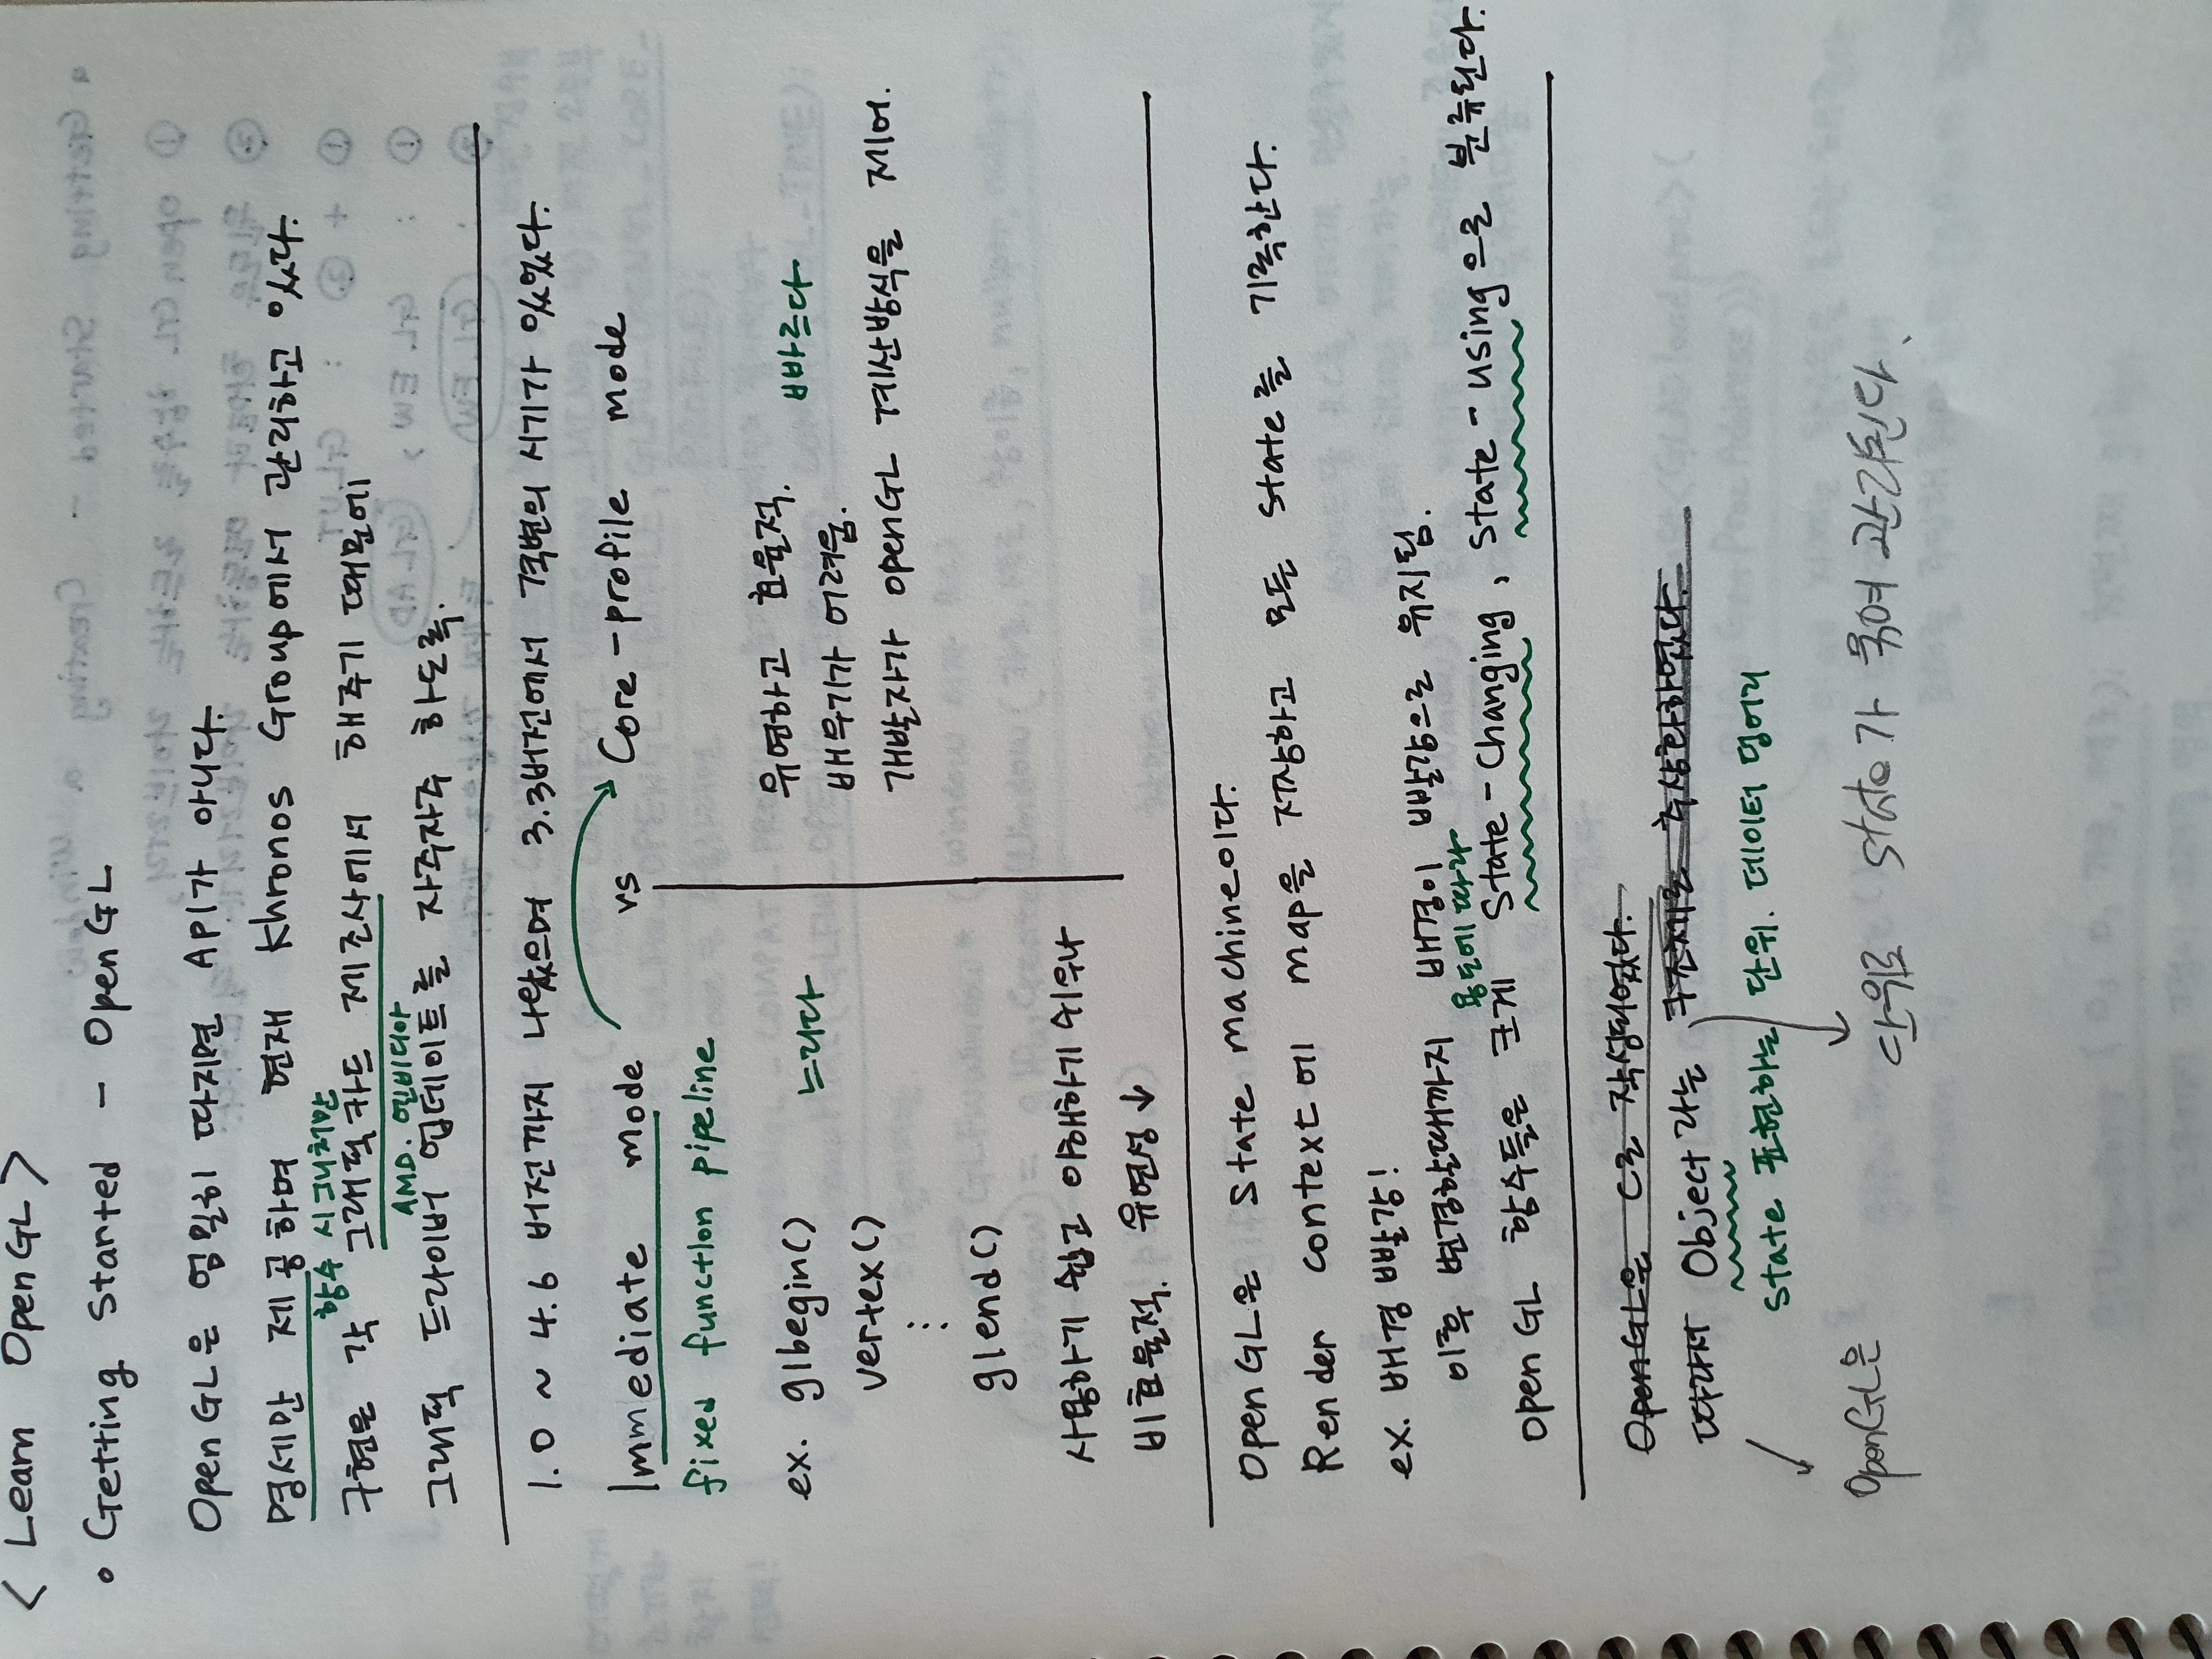 < Learn OpenGL >
• Getting Started - OpenGL
OpenGL은 엄밀히 따지면 API가 아니다.
명세만 제공하며 현재 Khronos Group에서 관리하고 있다.
함수 시그니처만
구현은 각 그래픽카드 제조사에서 해주기 때문에
AMD. 엔비디아
그래픽 드라이버 업데이트를 자주자주 하도록.
1.0 ~ 4.6 버전까지 나왔으며 3.3버전에서 격변의 시기가 있었다.
Immediate mode vs Core-profile mode
fixed function pipeline
ex. glbegin() 느리다
vertex()
⋮
glend()
사용하기 쉽고 이해하기 쉬우나
비효율적. 유연성 ↓
유연하고 효율적. 빠르다
배우기가 어려움.
개발자가 openGL 계산방식을 제어.
OpenGL은 State machine이다.
Render context에 map을 저장하고 모든 state를 기록한다.
ex. 배경 빨강!
이후 변경할때까지 배경이 빨강으로 유지됨.
용도에 따라
OpenGL 함수들은 크게 State-Changing, State-using으로 분류된다.
OpenGL은 C로 작성되었다.
따라서 Object라는 구조체로 추상화하였다.
State 표현하는 단위. 데이터 덩어리
OpenGL은 단위로 state가 묶여 관리된다.